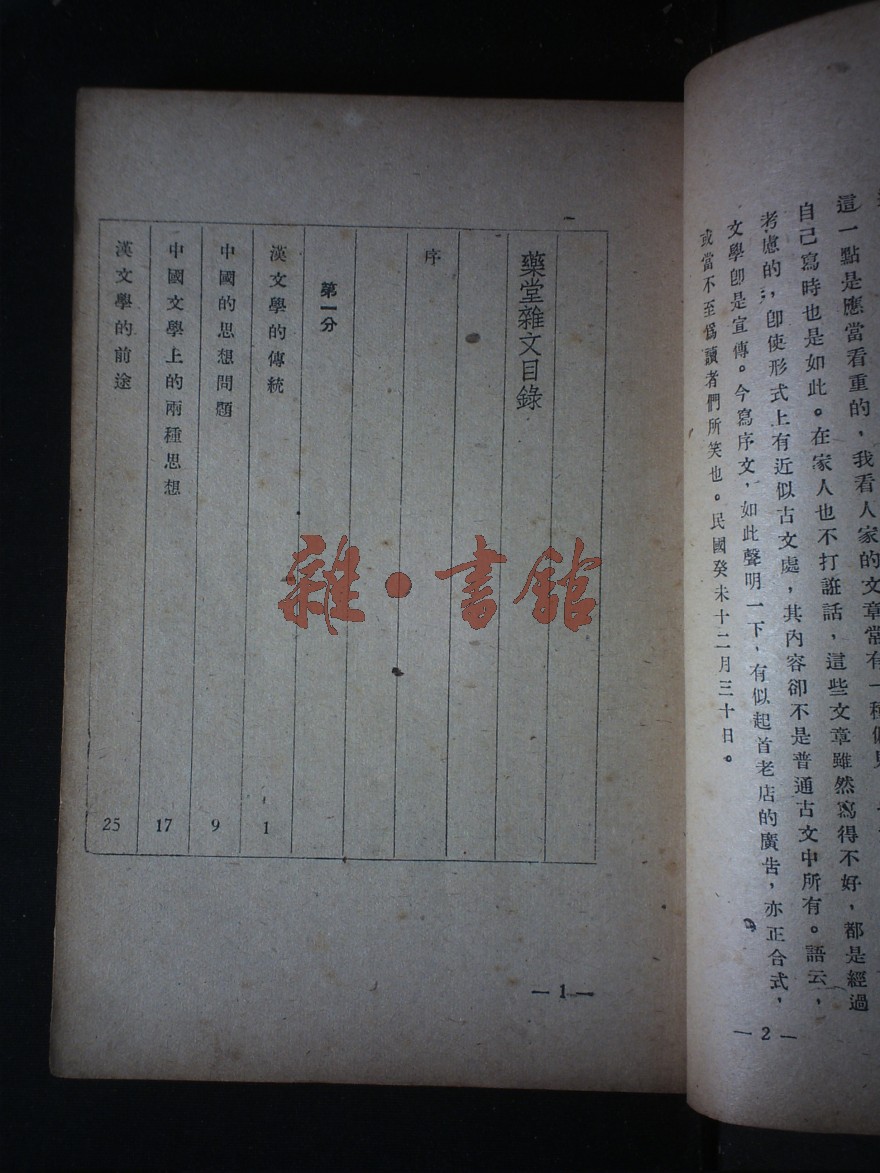 這一點是應當看重的，我看人家的文章常有一種偏見
自己寫時也是如此。在家人也不打誑話，這些文章雖然寫得不好，都是經過
考慮的，卽使形式上有近似古文處，其內容卻不是普通古文中所有。語云，
文學卽是宣傳。今寫序文，如此聲明一下，有似起首老店的廣告，亦正合式，
或當不至爲讀者們所笑也。民國癸未十二月三十日。
— 2 —
藥堂雜文目錄
序
第一分
漢文學的傳統 1
中國的思想問題 9
中國文學上的兩種思想 17
漢文學的前途 25
— 1 —
雜·書館